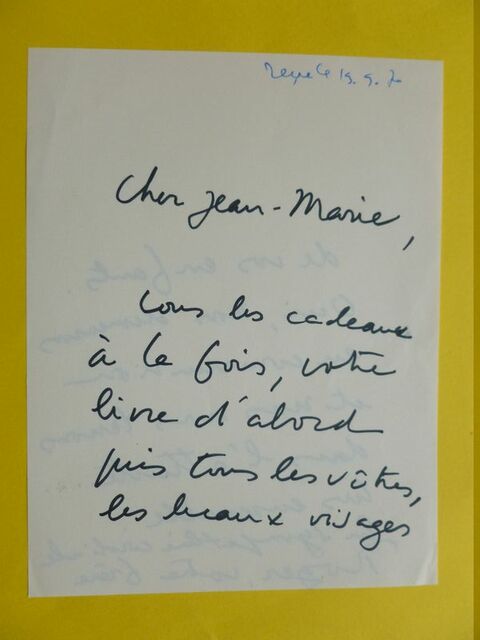 reçu le
Cher Jean-Marie,
tous les cadeaux
à la fois, votre
livre d'abord
puis tous les vôtres,
les beaux visages